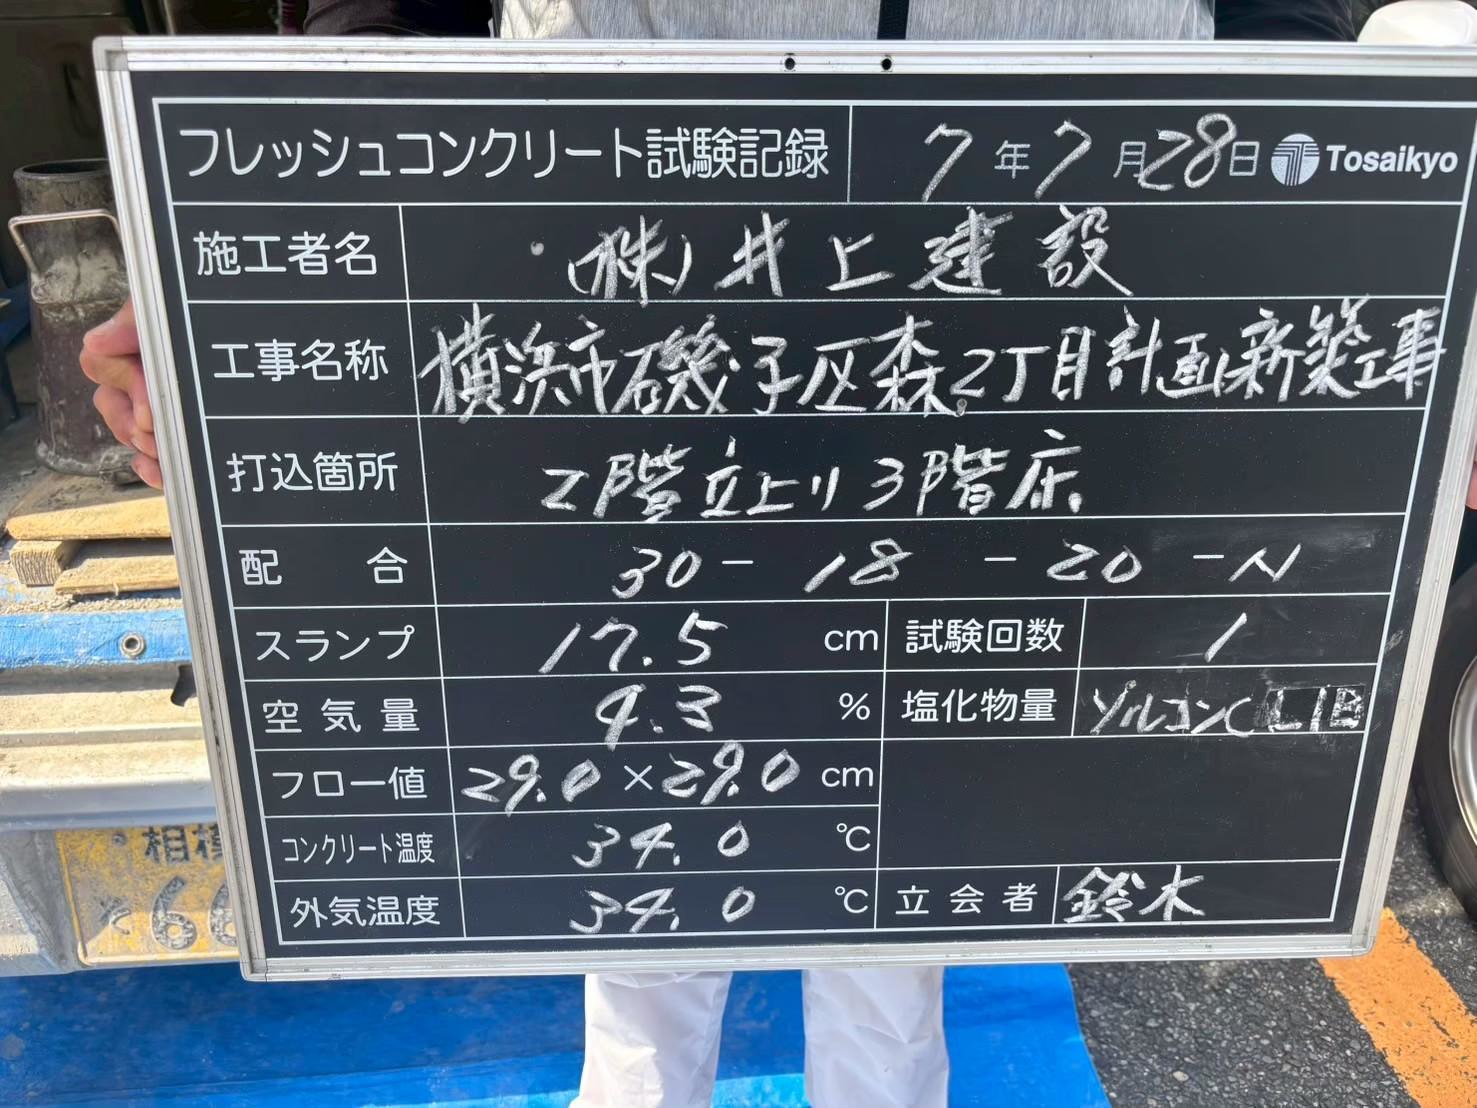 フレッシュコンクリート試験記録 7年7月28日 Tosaikyo
施工者名 (株)井上建設
工事名称 横浜市磯子区森2丁目計画新築工事
打込箇所 2階立上り3階床
配合 30-18-20-N
スランプ 17.5 cm 試験回数 1
空気量 4.3 % 塩化物量 ソルコンCL1B
フロー値 29.0×29.0 cm
コンクリート温度 34.0 ℃
外気温度 34.0 ℃ 立会者 鈴木
相模